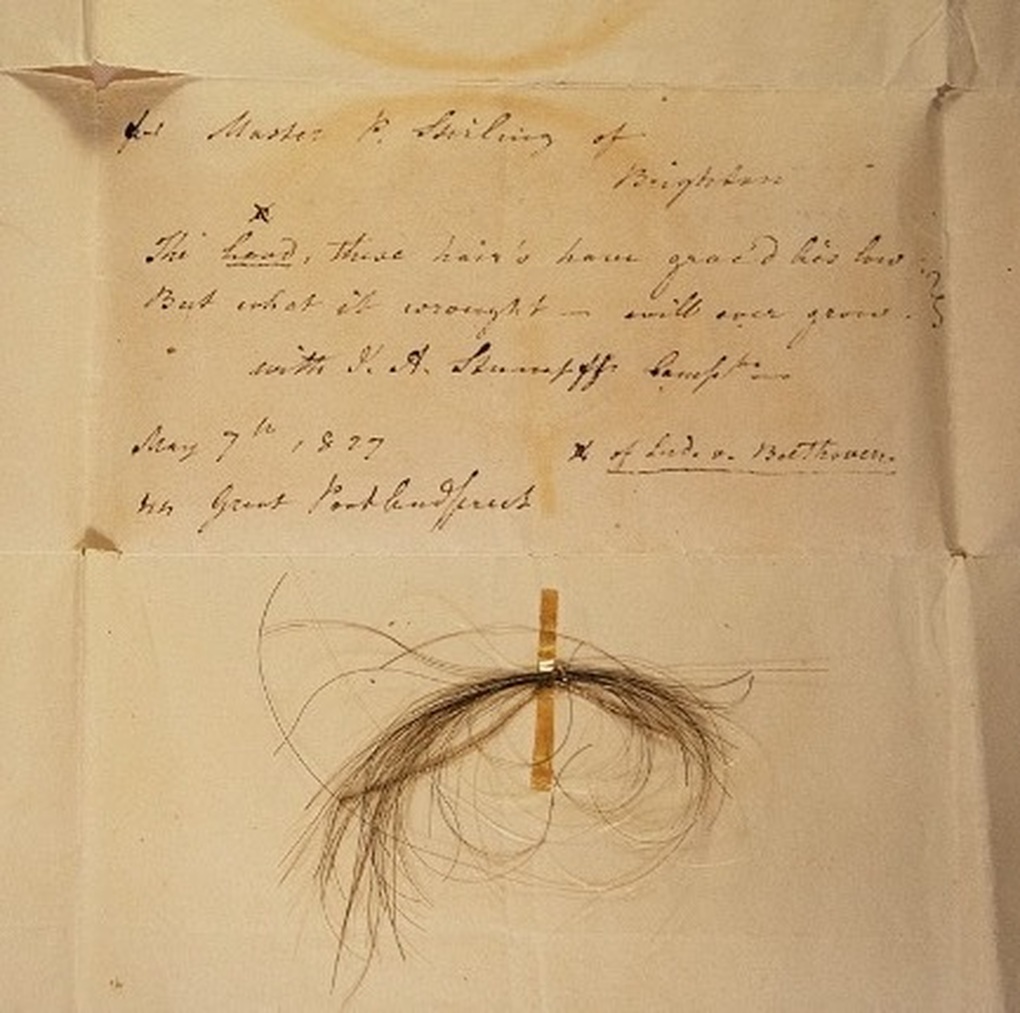 for Master P. Stirling of
Brighton
x
The head, these hair's have grac'd lies low
But what it wrought — will ever grow.
with J. A. Stumpff's Compts —
May 7th, 1827
Great Portland street
x of Lud. v. Beethoven.